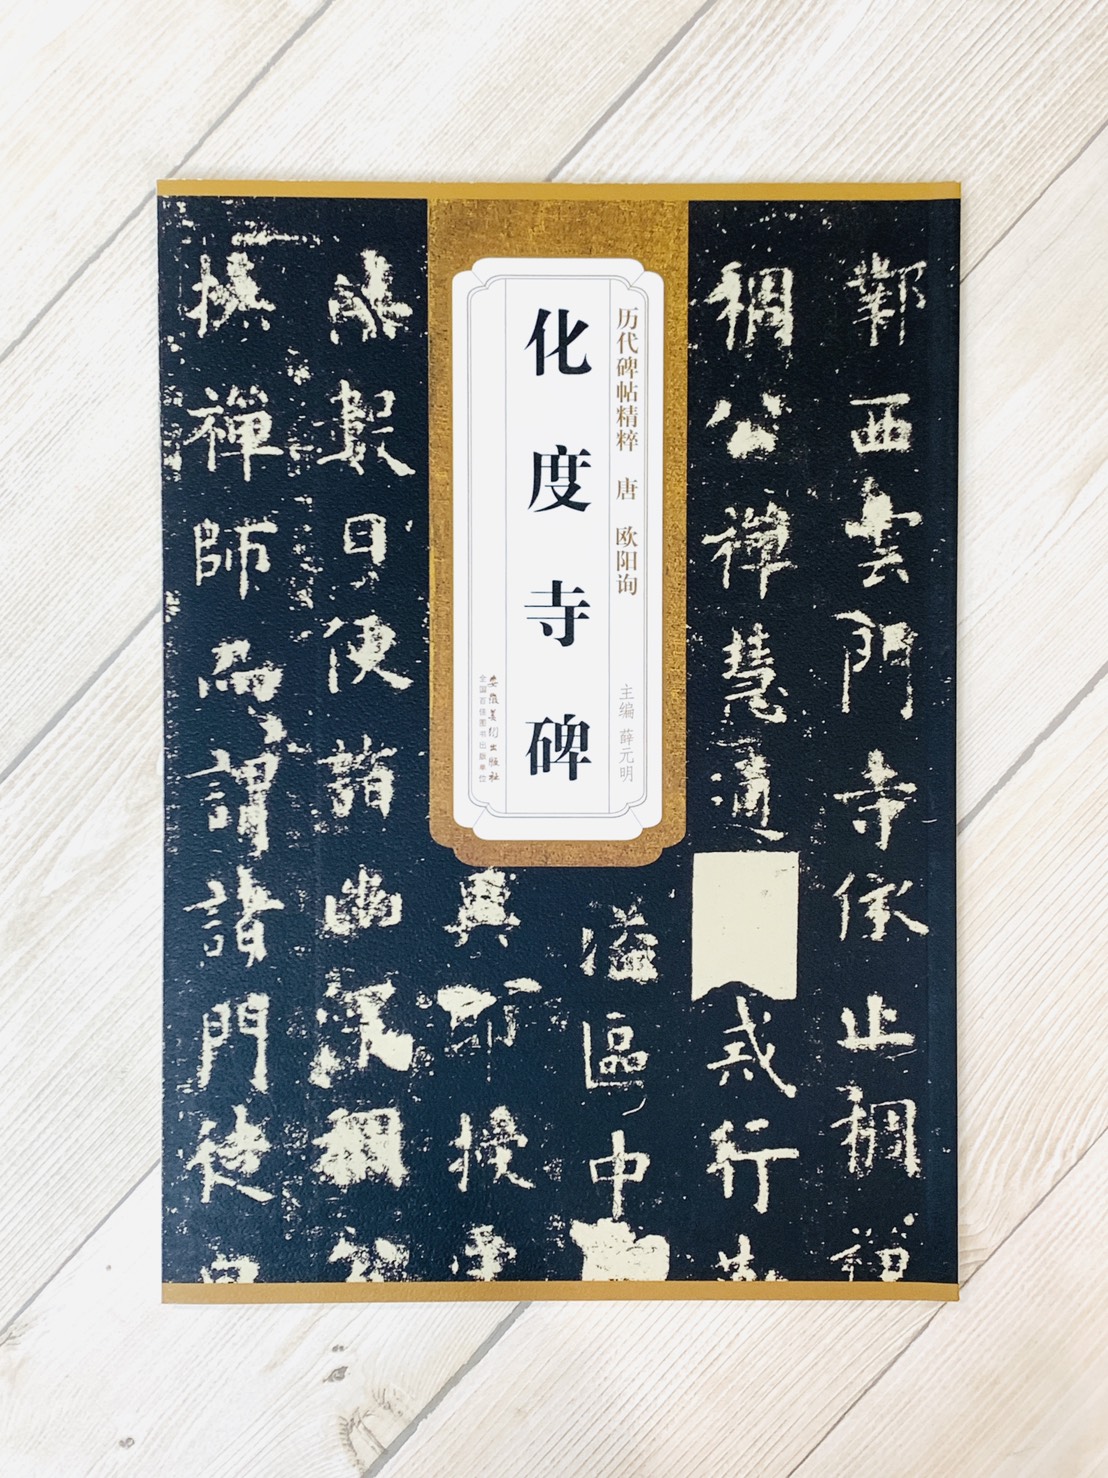 历代碑帖精粹 唐 欧阳询
主编 薛元明
化度寺碑
安徽美术出版社
全国百佳图书出版单位
鄴西雲門寺依止稠禪
稠公禪慧通戒行
溢區中
真即授
數日便詣幽深稠公
禪師而謂諸門徒曰